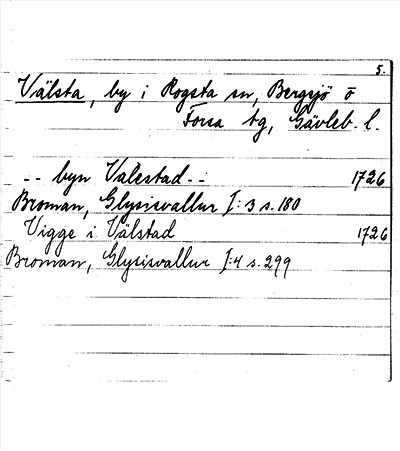 5.
Välsta, by i Rogsta sn, Bergsjö o
Forsa tg, Gävleb. l.
-- byn Valestad -- 1726
Broman, Glysisvallur I: 3 s. 180
Vigge i Välstad 1726
Broman, Glysisvallur I:4 s. 299